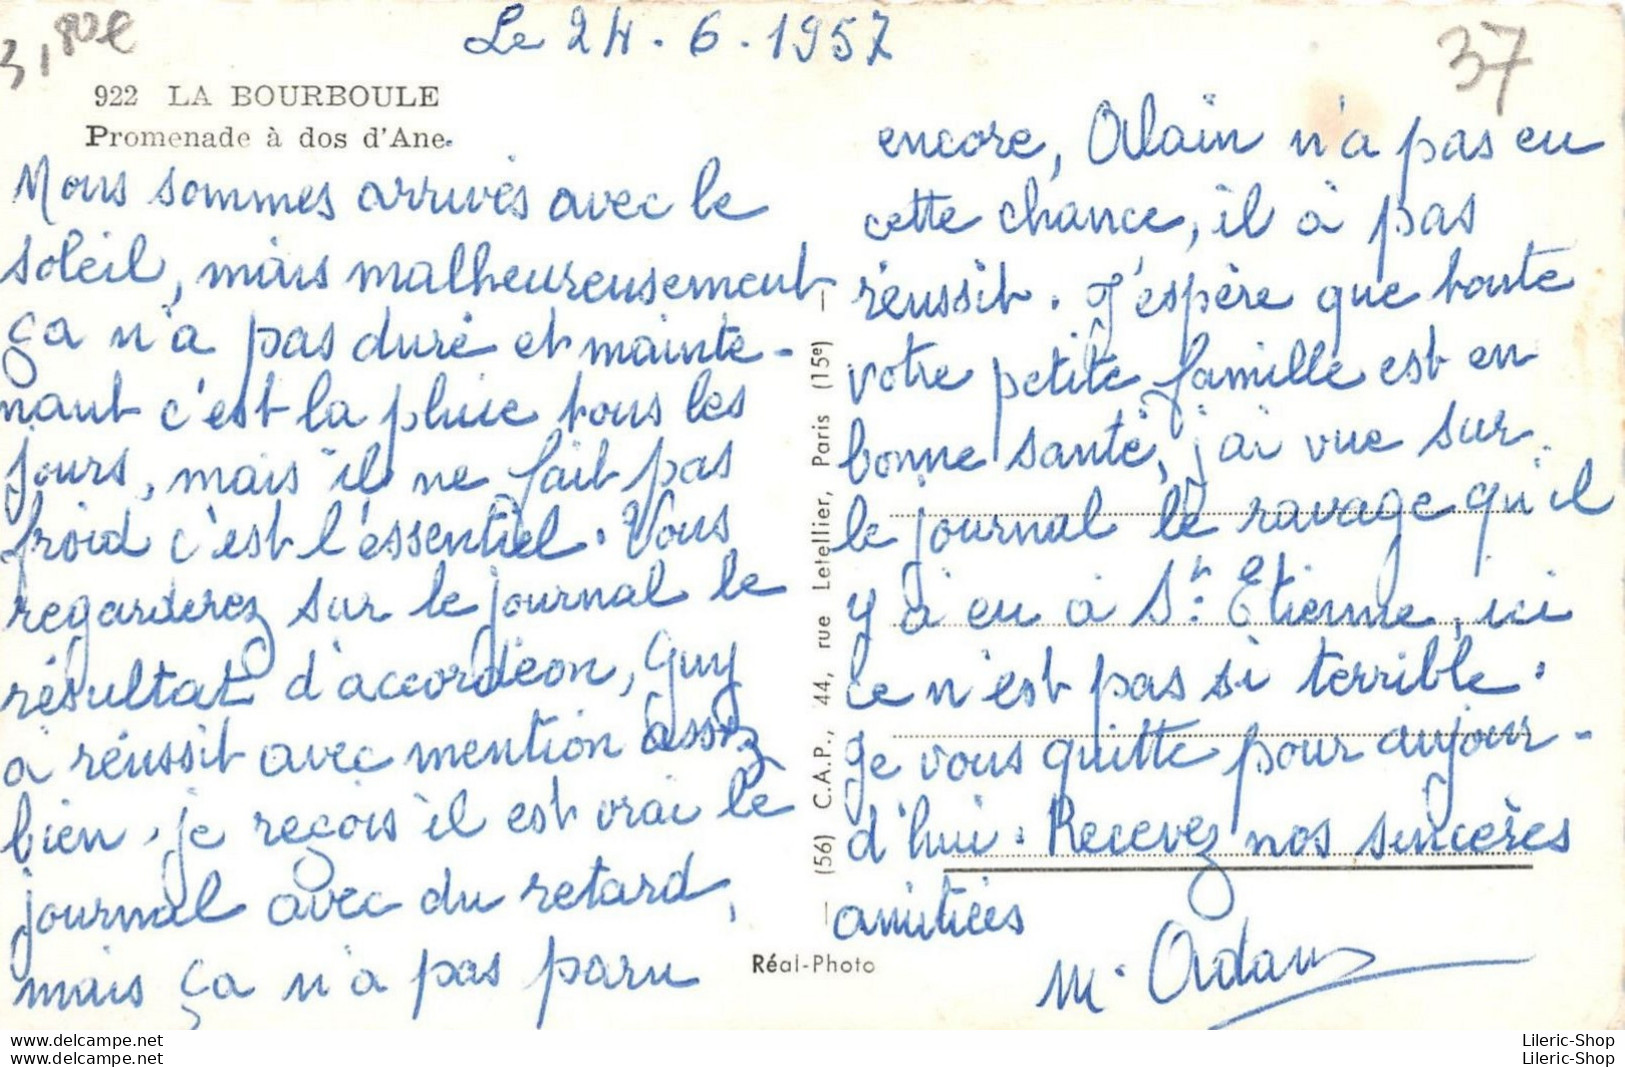 3,80€
Le 24.6.1957
37
922 LA BOURBOULE
Promenade à dos d'Ane.
Nous sommes arrivés avec le
soleil, mais malheureusement
ça n'a pas duré et mainte-
naut c'est la pluie tous les
jours, mais il ne fait pas
froid c'est l'éssentiel. Vous
regarderez sur le journal le
résultat d'accordéon, Guy
à réussit avec mention assez
bien. je reçois il est vrai le
journal avec du retard,
mais ça n'a pas paru
encore, Alain n'a pas eu
cette chance, il à pas
réussit. J'espère que toute
votre petite famille est en
bonne santé, j'ai vue sur
le journal le ravage qu'il
y à eu à St. Etienne, ici
ce n'est pas si terrible.
Je vous quitte pour aujour-
d'hui. Recevez nos sincères
amitiées
M. Adam
(56) C.A.P., 44, rue Letellier, Paris (15e)
Réal-Photo
Lileric-Shop delcampe.net
Lileric-Shop delcampe.net
Lileric-Shop
Lileric-Shop